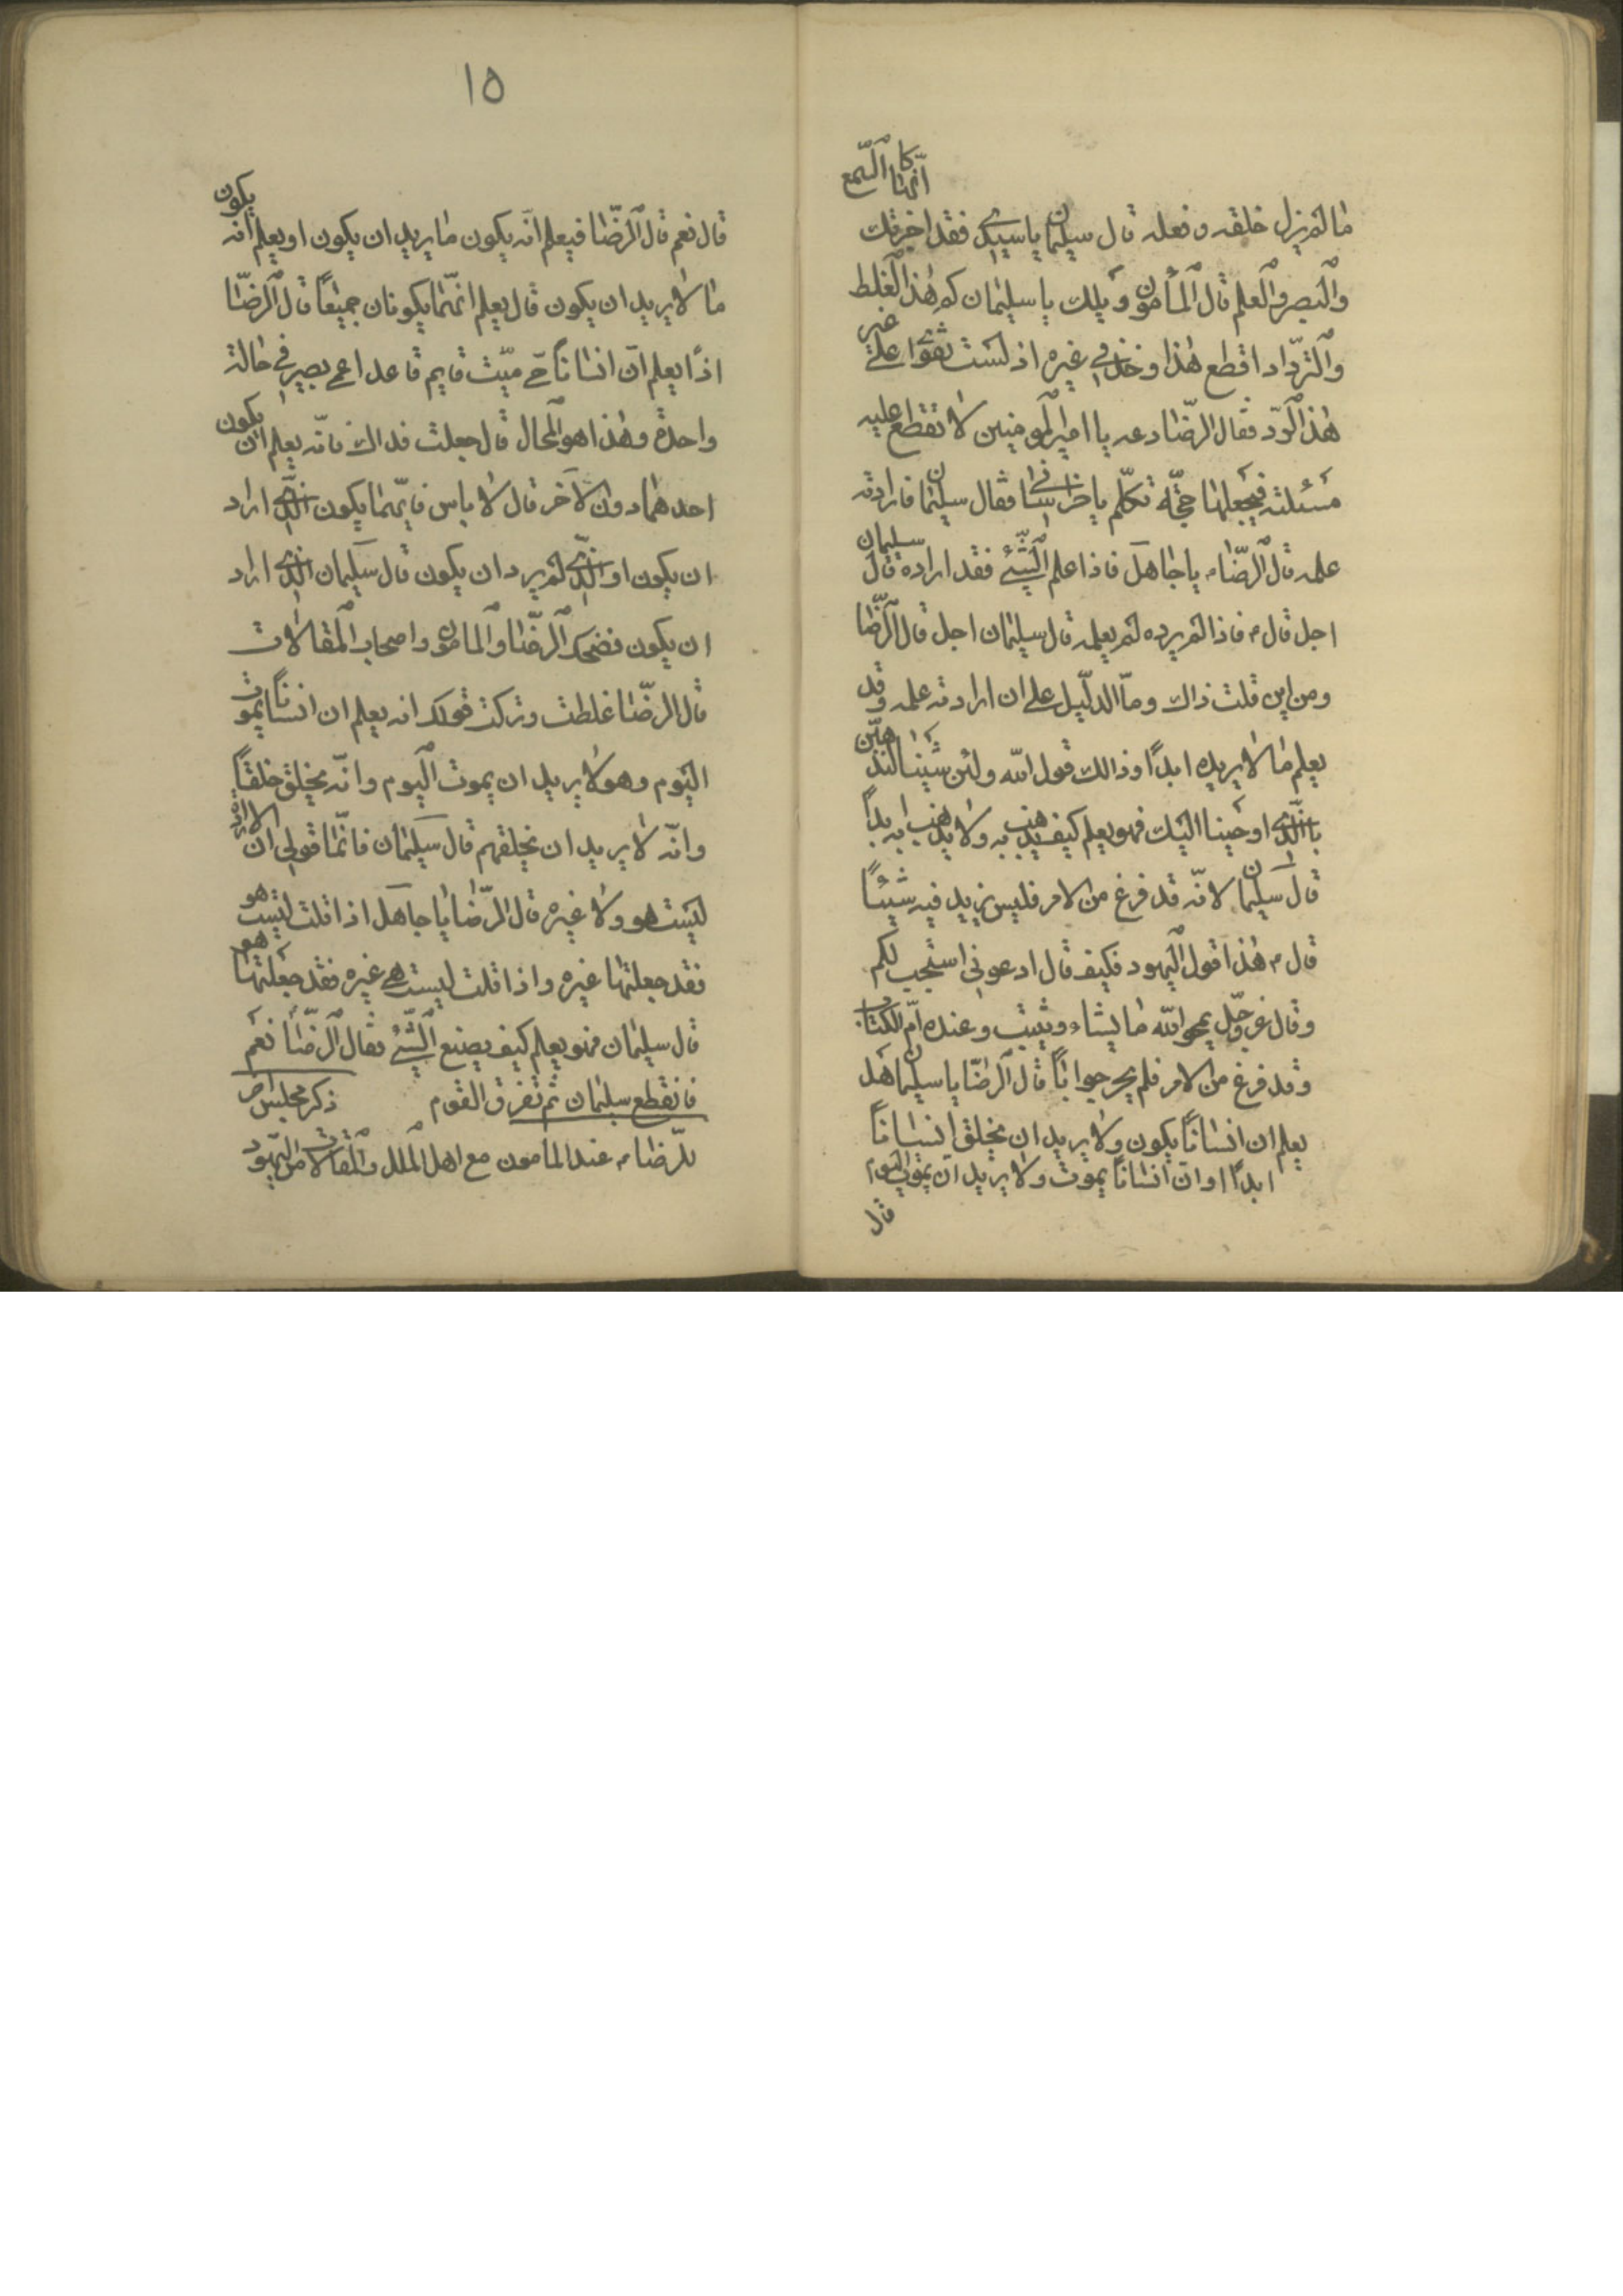 ما لم يزل خلقه وفعله قال سليمان يا سيدي فقد اخبرتك انها كالسمع
والبصر والعلم قال المأمون ويلك يا سليمان كم هذا الغلط
والترداد اقطع هذا وخذ في غيره اذ لست تقوى على غير
هذا الرد فقال الرضا دعه يا امير المومنين لا تقطع عليه
مسئلته فيجعلها حجة تكلم يا خراساني فقال سليمان فارادته
علمه قال الرضا م يا جاهل فاذا علم الشئ فقد اراده قال سليمان
اجل قال م فاذا لم يرده لم يعلمه قال سليمان اجل قال الرضا
ومن اين قلت ذاك وما الدليل على ان ارادته علمه وقد
يعلم ما لا يريده ابدًا وذالك قول الله ولئن شئنا لنذهبن
بالذي اوحينا اليك فهو يعلم كيف يذهب به ولا يذهب به ابدًا
قال سليمان لانه قد فرغ من الامر فليس يزيد فيه شيئًا
قال م هذا قول اليهود فكيف قال ادعوني استجب لكم
وقال عز وجل يمحو الله ما يشاء ويثبت وعنده ام الكتاب
وقد فرغ من الامر فلم يحر جوابًا قال الرضا يا سليمان هل
يعلم ان انسانًا يكون ولا يريد ان يخلق انسانًا
ابدًا او ان انسانًا يموت ولا يريد ان يموت اليوم
قال
١٥
قال نعم قال الرضا فيعلم انه يكون ما يريد ان يكون او يعلم انه يكون
ما لا يريد ان يكون قال يعلم انهما يكونان جميعًا قال الرضا
اذًا يعلم ان انسانًا حي ميت قايم قاعد اعمى بصير في حالة
واحدة وهذا هو المحال قال جعلت فداك فانه يعلم ان يكون
احدهما دون الاخر قال لا باس فايهما يكون الذي اراد
ان يكون او الذي لم يرد ان يكون قال سليمان الذي اراد
ان يكون فضحك الرضا والمامون واصحاب المقالات
قال الرضا غلطت وتركت قولك انه يعلم ان انسانًا يموت
اليوم وهو لا يريد ان يموت اليوم وانه يخلق خلقًا
وانه لا يريد ان يخلقهم قال سليمان فانما قولي ان الارادة
ليست هو ولا غيره قال الرضا يا جاهل اذا قلت ليست هو
فقد جعلتها غيره واذا قلت ليست هي غيره فقد جعلتها هو
قال سليمان فهو يعلم كيف يصنع الشئ فقال الرضا نعم
فانقطع سليمان ثم تفرق القوم ذكر مجلس
للرضا م عند المامون مع اهل الملل والمقالات من اليهود